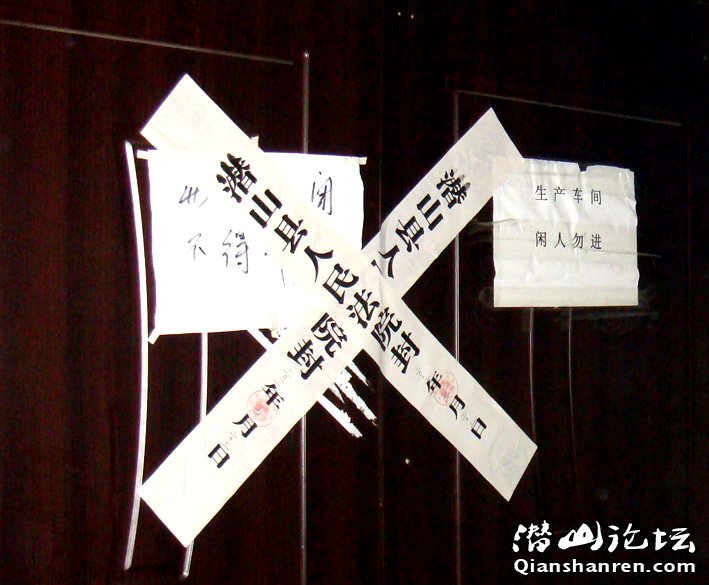 此 闭
不得
潜山县人民法院封
年月日
潜山县人 院封
年月日
生产车间
闲人勿进
潜山论坛
Qianshanren.com